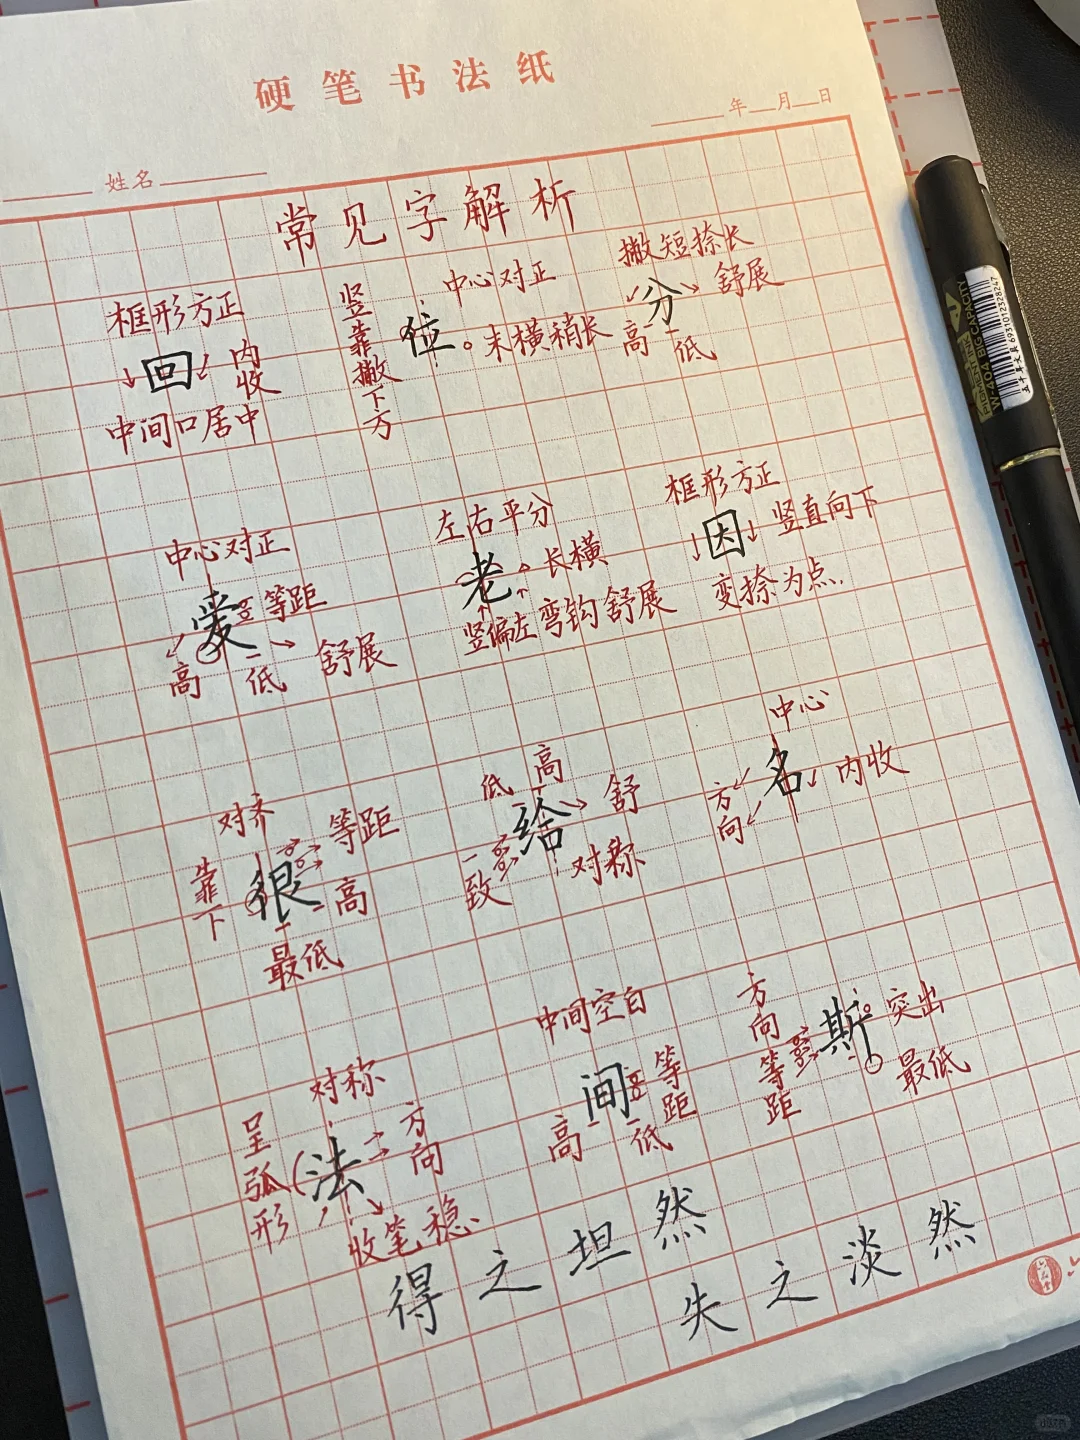 硬笔书法纸
年 月 日
姓名
常见字解析
框形方正
回
内收
中间口居中
竖靠撇下方
中心对正
位
末横稍长
撇短捺长
分
舒展
高
低
中心对正
爱
等距
高
低
舒展
左右平分
老
长横
竖偏左
弯钩舒展
框形方正
因
竖直向下
变捺为点.
对齐
靠下
很
等距
高
最低
低
高
给
舒
一致
对称
中心
名
方向
内收
对称
呈弧形
法
方向
收笔稳
中间空白
间
等距
高
低
方向等距
斯
突出
最低
得之坦然
失之淡然
BIG CAPACITY
6931012328247